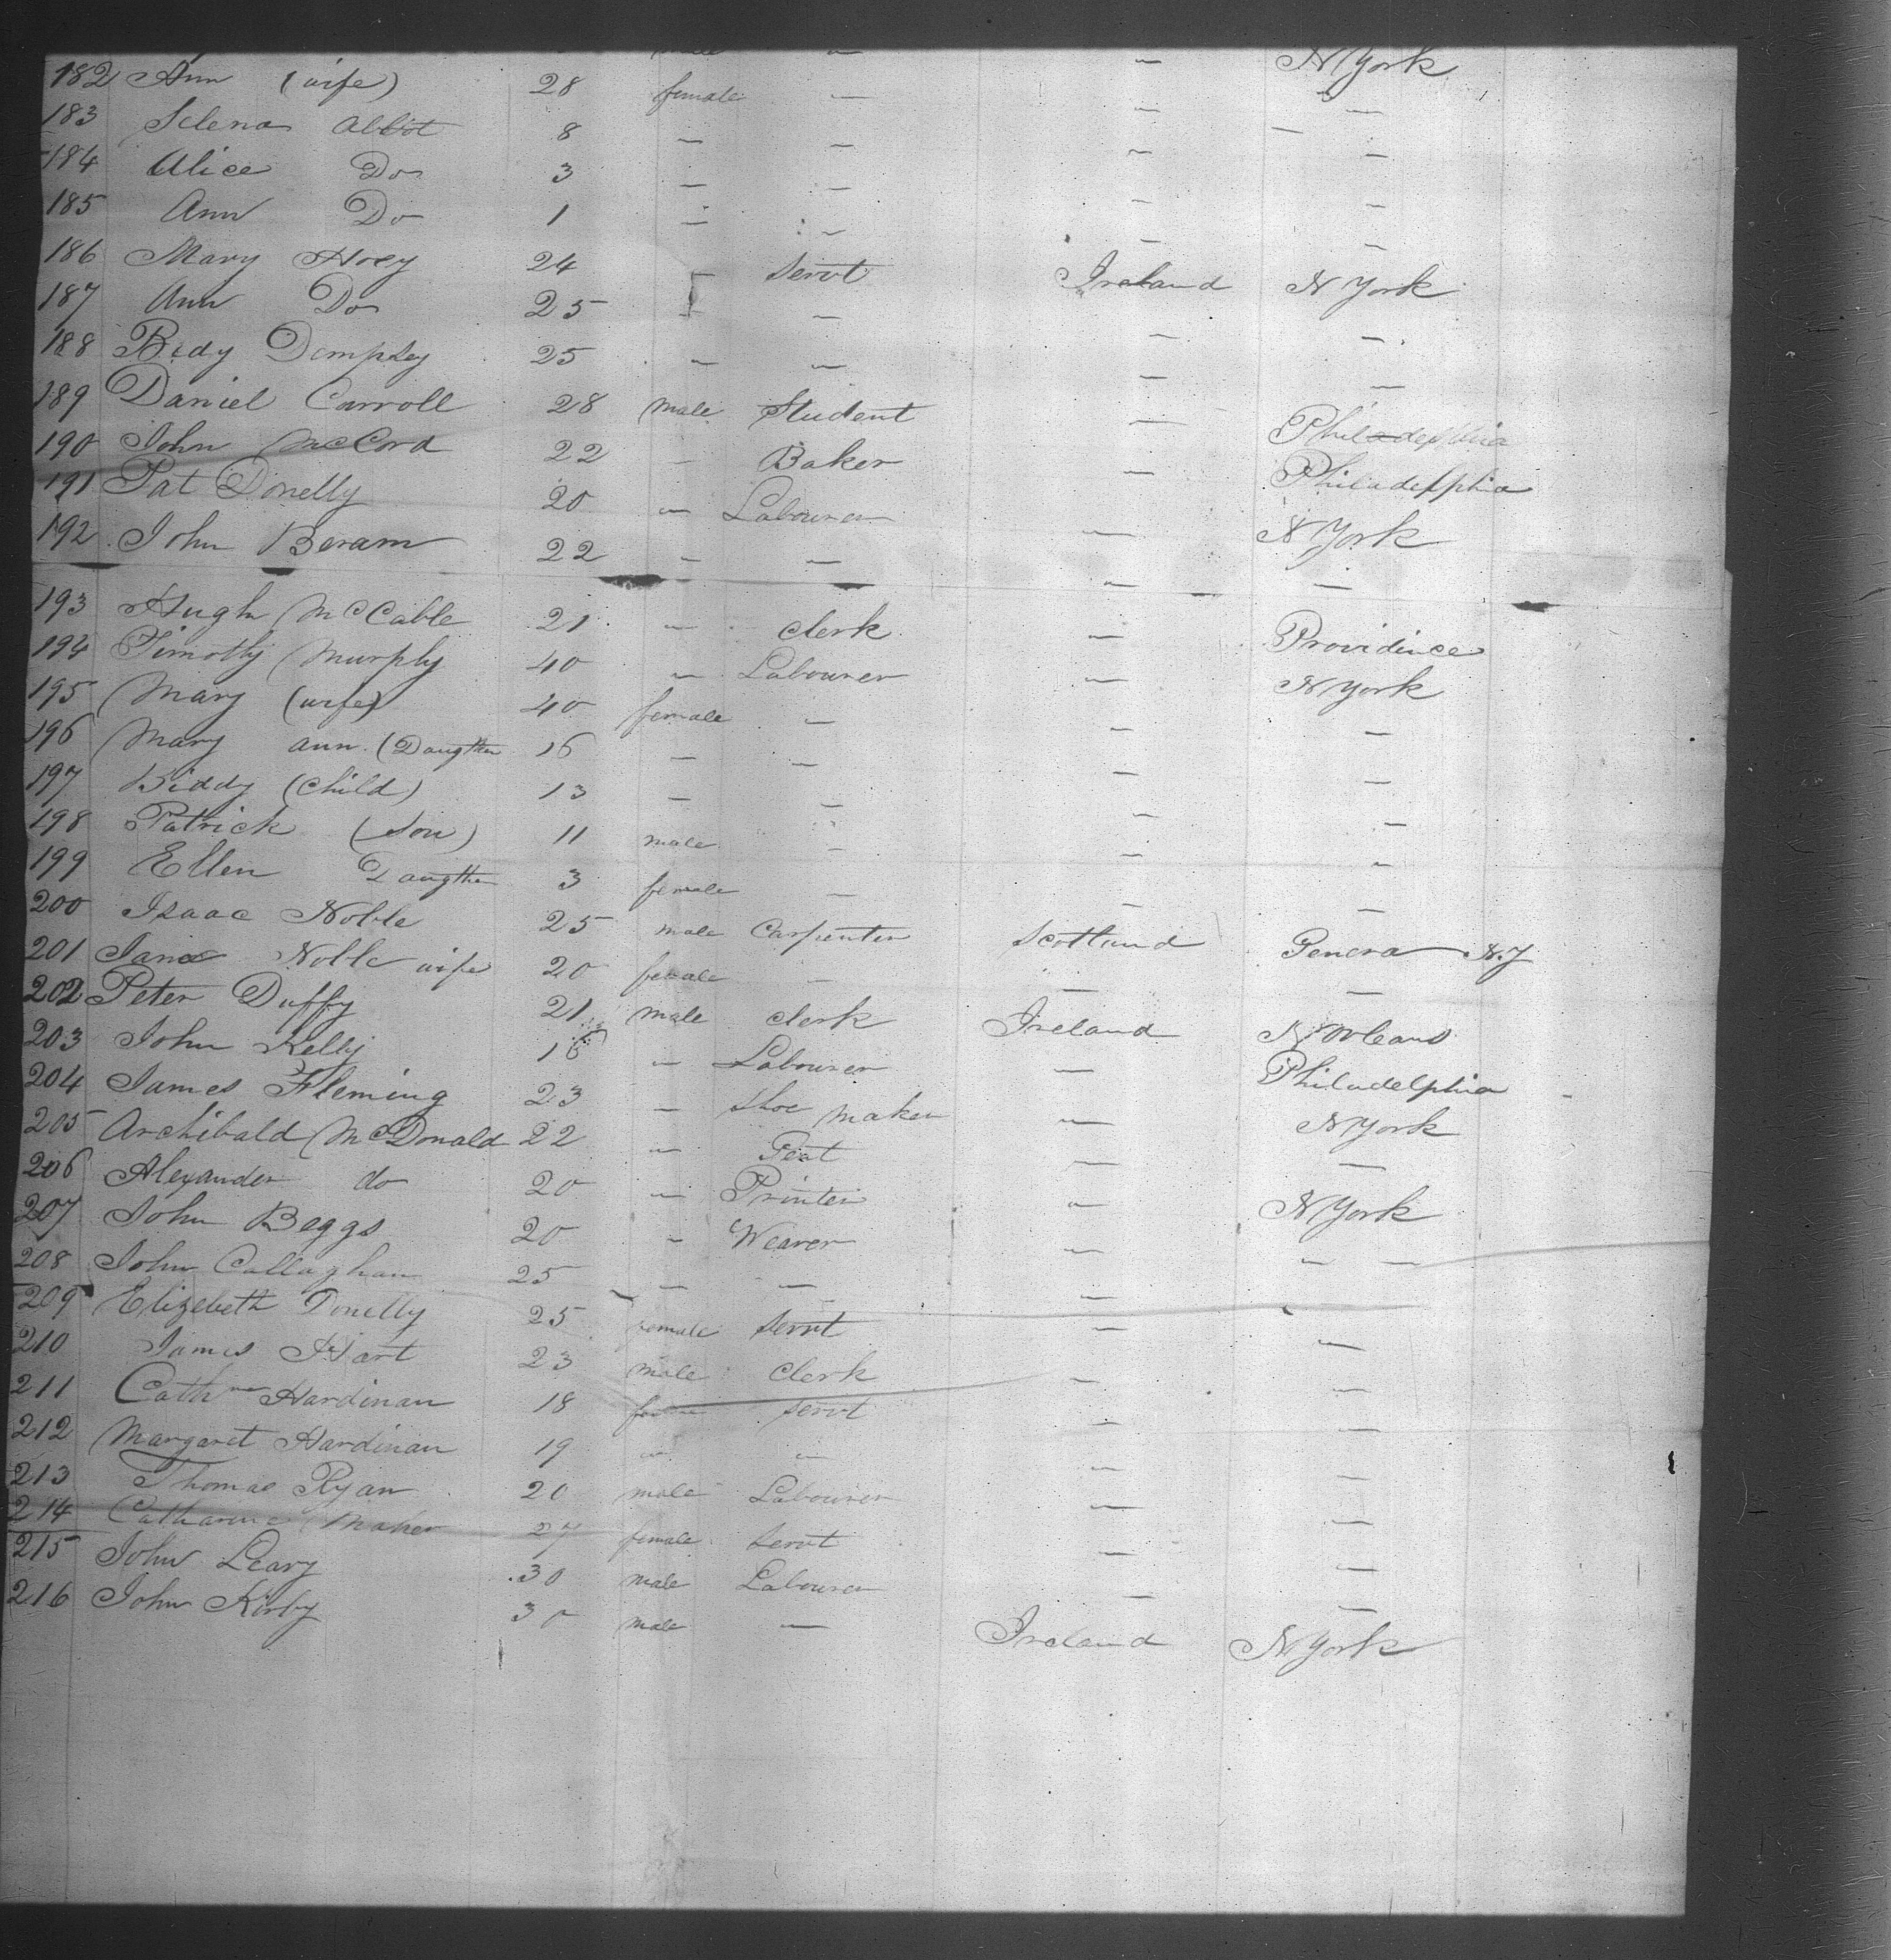 male — — N York
182 Ann (wife) 28 female — — —
183 Selena Abbot 8 — — — —
184 Alice Do 3 — — — —
185 Ann Do 1 — — — —
186 Mary Hoey 24 — Servt Ireland N York
187 Ann Do 25 — — — —
188 Bidy Dempsey 25 — — — —
189 Daniel Carroll 28 male Student — Philadelphia
190 John McCord 22 — Baker — Philadelphia
191 Pat Donelly 20 — Labourer — N York
192 John Beram 22 — — — —
193 Hugh McCable 21 — Clerk — Providince
194 Timothy Murphy 40 — Labourer — N York
195 Mary (wife) 40 female — — —
196 Mary Ann (Daugther 16 — — — —
197 Biddy (Child) 13 — — — —
198 Patrick (Son) 11 male — — —
199 Ellen Daugther 3 female — — —
200 Isaac Noble 25 male Carpenter Scotland Geneva N.Y
201 Jane Noble wife 20 female — — —
202 Peter Duffy 21 male Clerk Ireland N Orleans
203 John Kelly 16 — Labourer — Philadelphia
204 James Fleming 23 — Shoe maker — N York
205 Archibald McDonald 22 — Gent — —
206 Alexander do 20 — Printer — N York
207 John Beggs 20 — Weaver — —
208 John Callaghan 25 — — — —
209 Elizebeth Donelly 25 female Servt — —
210 James Hart 23 male Clerk — —
211 Cathne Hardinan 18 female Servt — —
212 Margaret Hardinan 19 — — — —
213 Thomas Ryan 20 male Labourer — —
214 Catharine Maher 27 female Servt — —
215 John Leary 30 male Labourer — —
216 John Kirby 30 male — Ireland N York